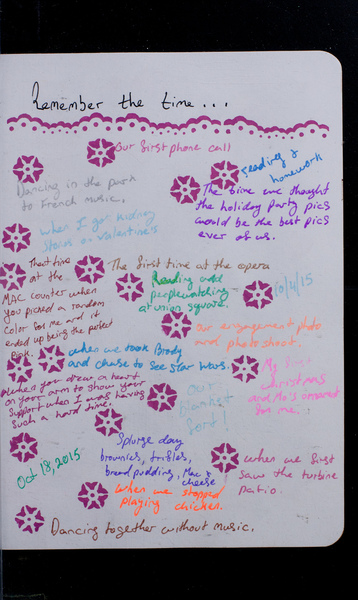 Remember the time...
Our first phone call
Reading &
homework
Dancing in the park
to French music.
The time we thought
the holiday party pics
would be the best pics
ever of us.
When I got nuding
stars on valentine's
That time
at the
MAC counter when
you picked a random
color for me and it
ended up being the perfect
pink.
The first time at the opera
Reading and
peoplewatching
at union square.
10/4/15
Our engagement photo
and photo shoot.
When we took Brody
and chase to see Star Wars.
My first
Christmas
and Mo's ornament
for me.
When you drew a heart
on your arm to show your
support when I was having
such a hard time.
Our
Blanket
fort!
Oct 18, 2015
Splurge day
brownies, trifles,
bread pudding, Mac &
cheese
When we first
saw the turbine
patio.
When we stopped
playing chicken.
Dancing together without music.